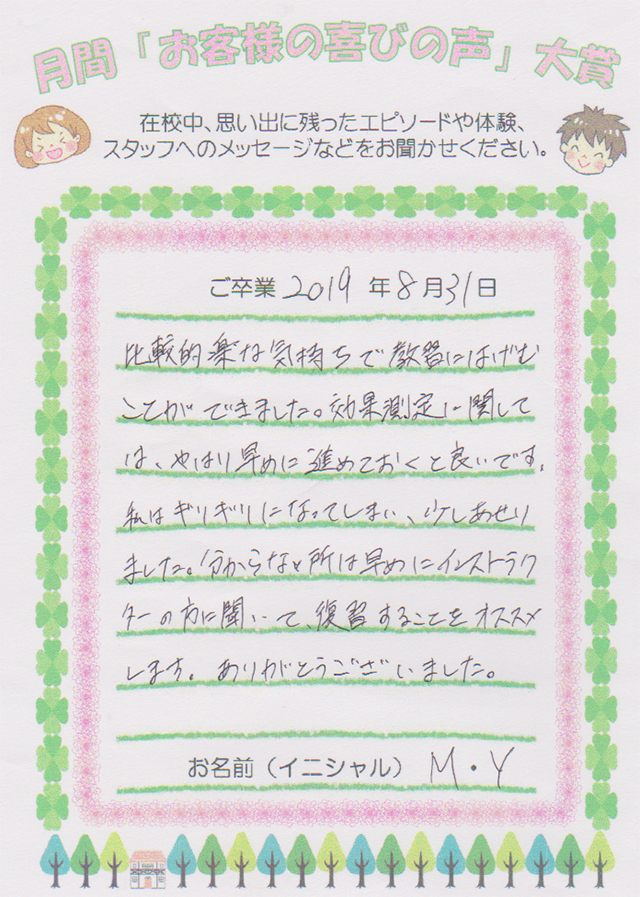 月間「お客様の喜びの声」大賞
在校中、思い出に残ったエピソードや体験、
スタッフへのメッセージなどをお聞かせください。
ご卒業 2019 年 8 月 31 日
比較的楽な気持ちで教習にはげむ
ことができました。効果測定に関して
は、やはり早めに進めておくと良いです。
私はギリギリになってしまい、少しあせり
ました。分からない所は早めにインストラク
ターの方に聞いて、復習することをオススメ
します。ありがとうございました。
お名前（イニシャル） M・Y